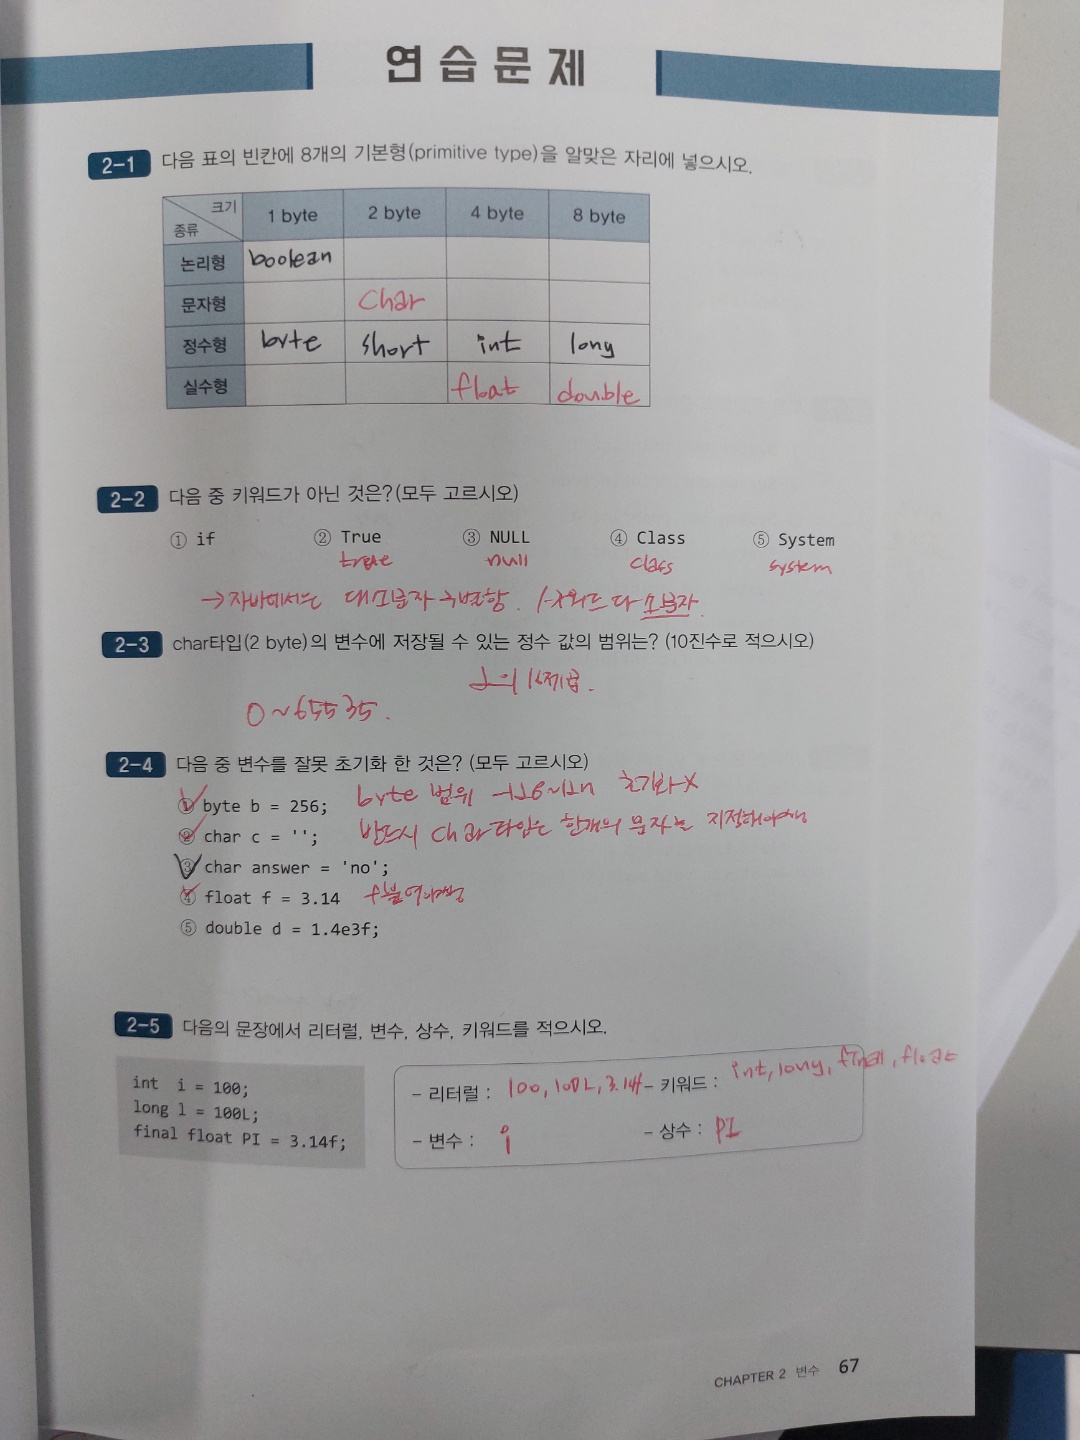 연습문제
2-1 다음 표의 빈칸에 8개의 기본형(primitive type)을 알맞은 자리에 넣으시오.
크기 종류 1 byte 2 byte 4 byte 8 byte
논리형 boolean
문자형 char
정수형 byte short int long
실수형 float double
2-2 다음 중 키워드가 아닌 것은?(모두 고르시오)
① if ② True ③ NULL ④ Class ⑤ System
true null class system
→ 자바에서는 대소문자 구별함. 키워드 다 소문자.
2-3 char타입(2 byte)의 변수에 저장될 수 있는 정수 값의 범위는? (10진수로 적으시오)
2의 16제곱.
0~65535.
2-4 다음 중 변수를 잘못 초기화 한 것은? (모두 고르시오)
① byte b = 256; byte 범위 초기화 X
② char c = ''; 반드시 char 타입은 한개의 문자를 지정해야함
③ char answer = 'no';
④ float f = 3.14 f붙여야함
⑤ double d = 1.4e3f;
2-5 다음의 문장에서 리터럴, 변수, 상수, 키워드를 적으시오.
int i = 100;
long l = 100L;
final float PI = 3.14f;
- 리터럴 : 100, 100L, 3.14f - 키워드 : int, long, final, float
- 변수 : i - 상수 : PI
CHAPTER 2 변수 67